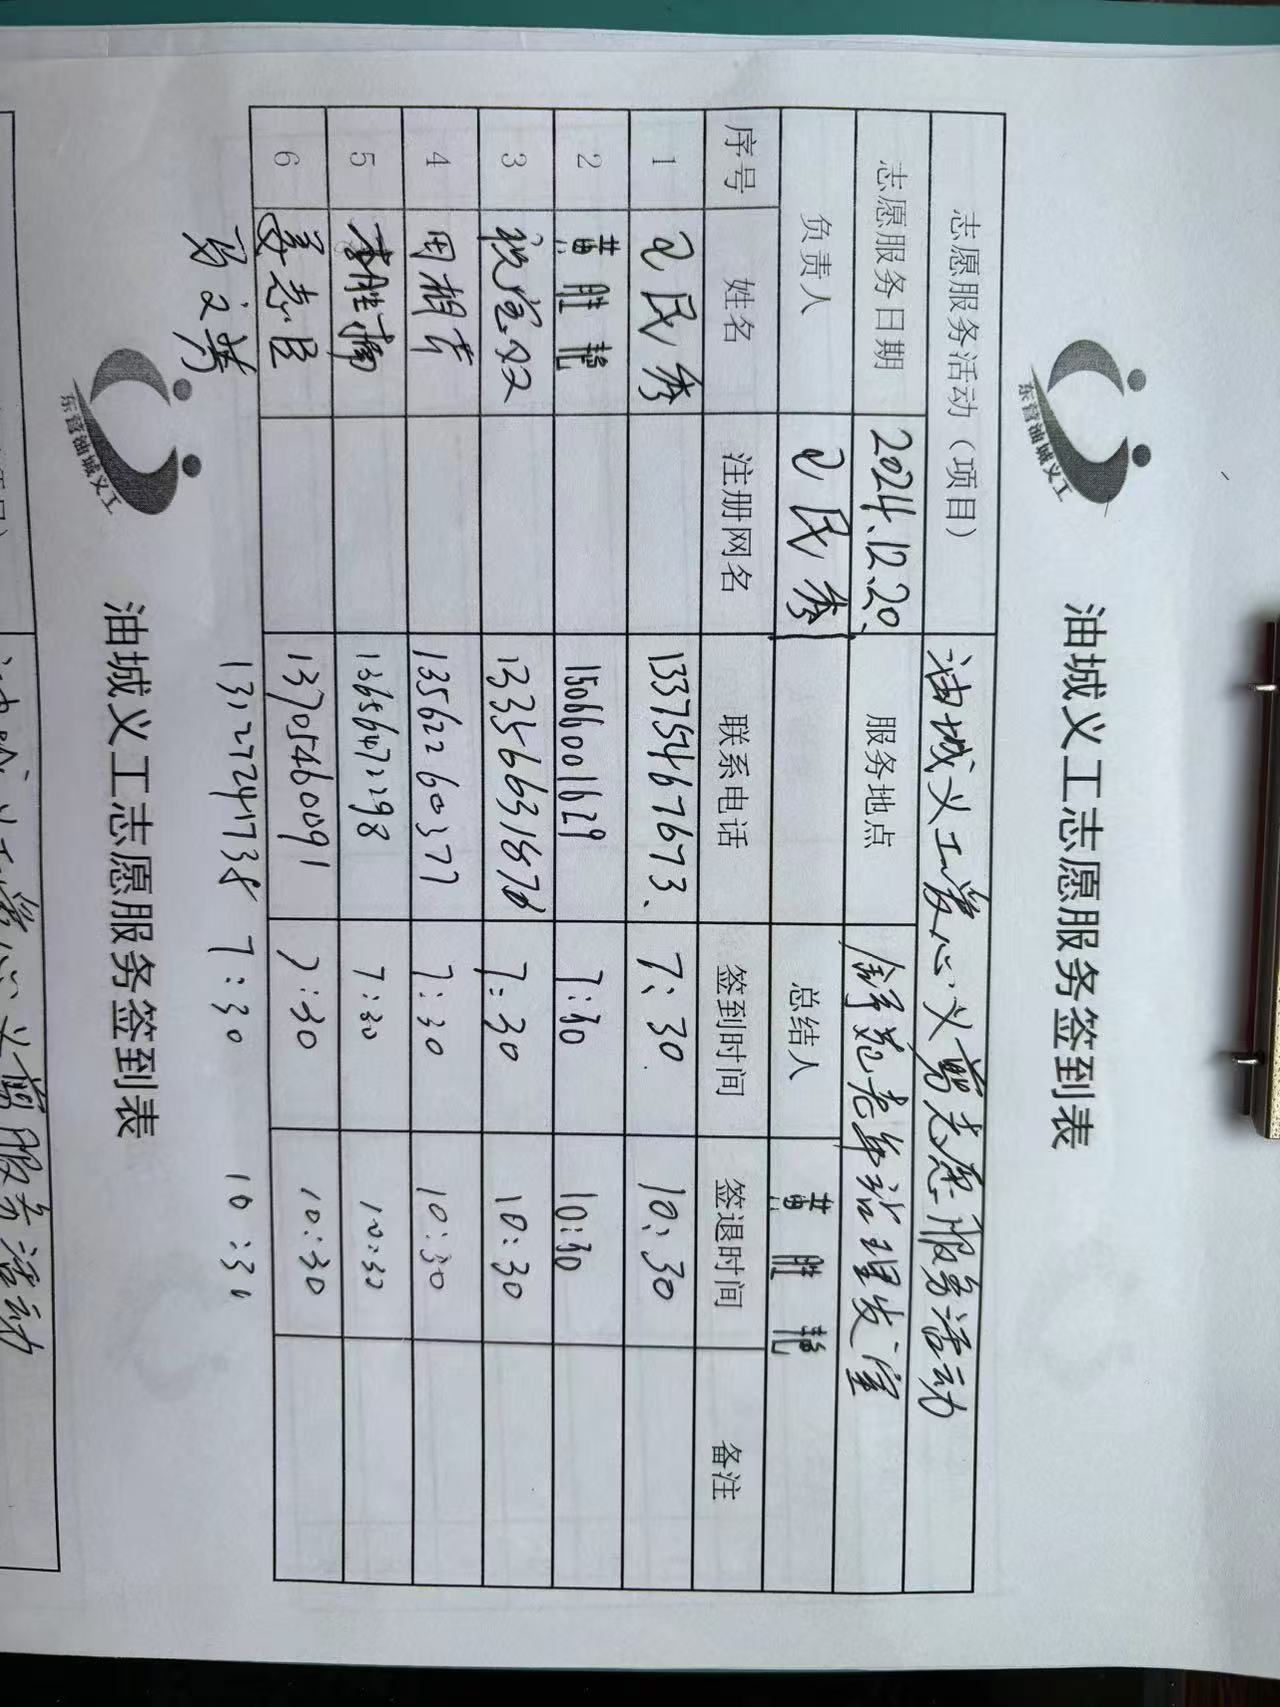 东营油城义工
油城义工志愿服务签到表
志愿服务活动（项目） 油城义工爱心义剪志愿服务活动
志愿服务日期 2024.12.20. 服务地点 锦苑老年站理发室
负责人 王民秀 总结人 黄胜艳
序号 姓名 注册网名 联系电话 签到时间 签退时间 备注
1 王民秀 13375467673. 7:30. 10:30
2 黄胜艳 15066001629 7:30 10:30
3 税宝双 13356631876 7:30 10:30
4 田相吉 13562260377 7:30 10:30
5 李胜楠 13656472298 7:30 10:30
6 姜志臣 13705460091 7:30 10:30
13272241738 7:30 10:30
东营油城义工
油城义工志愿服务签到表